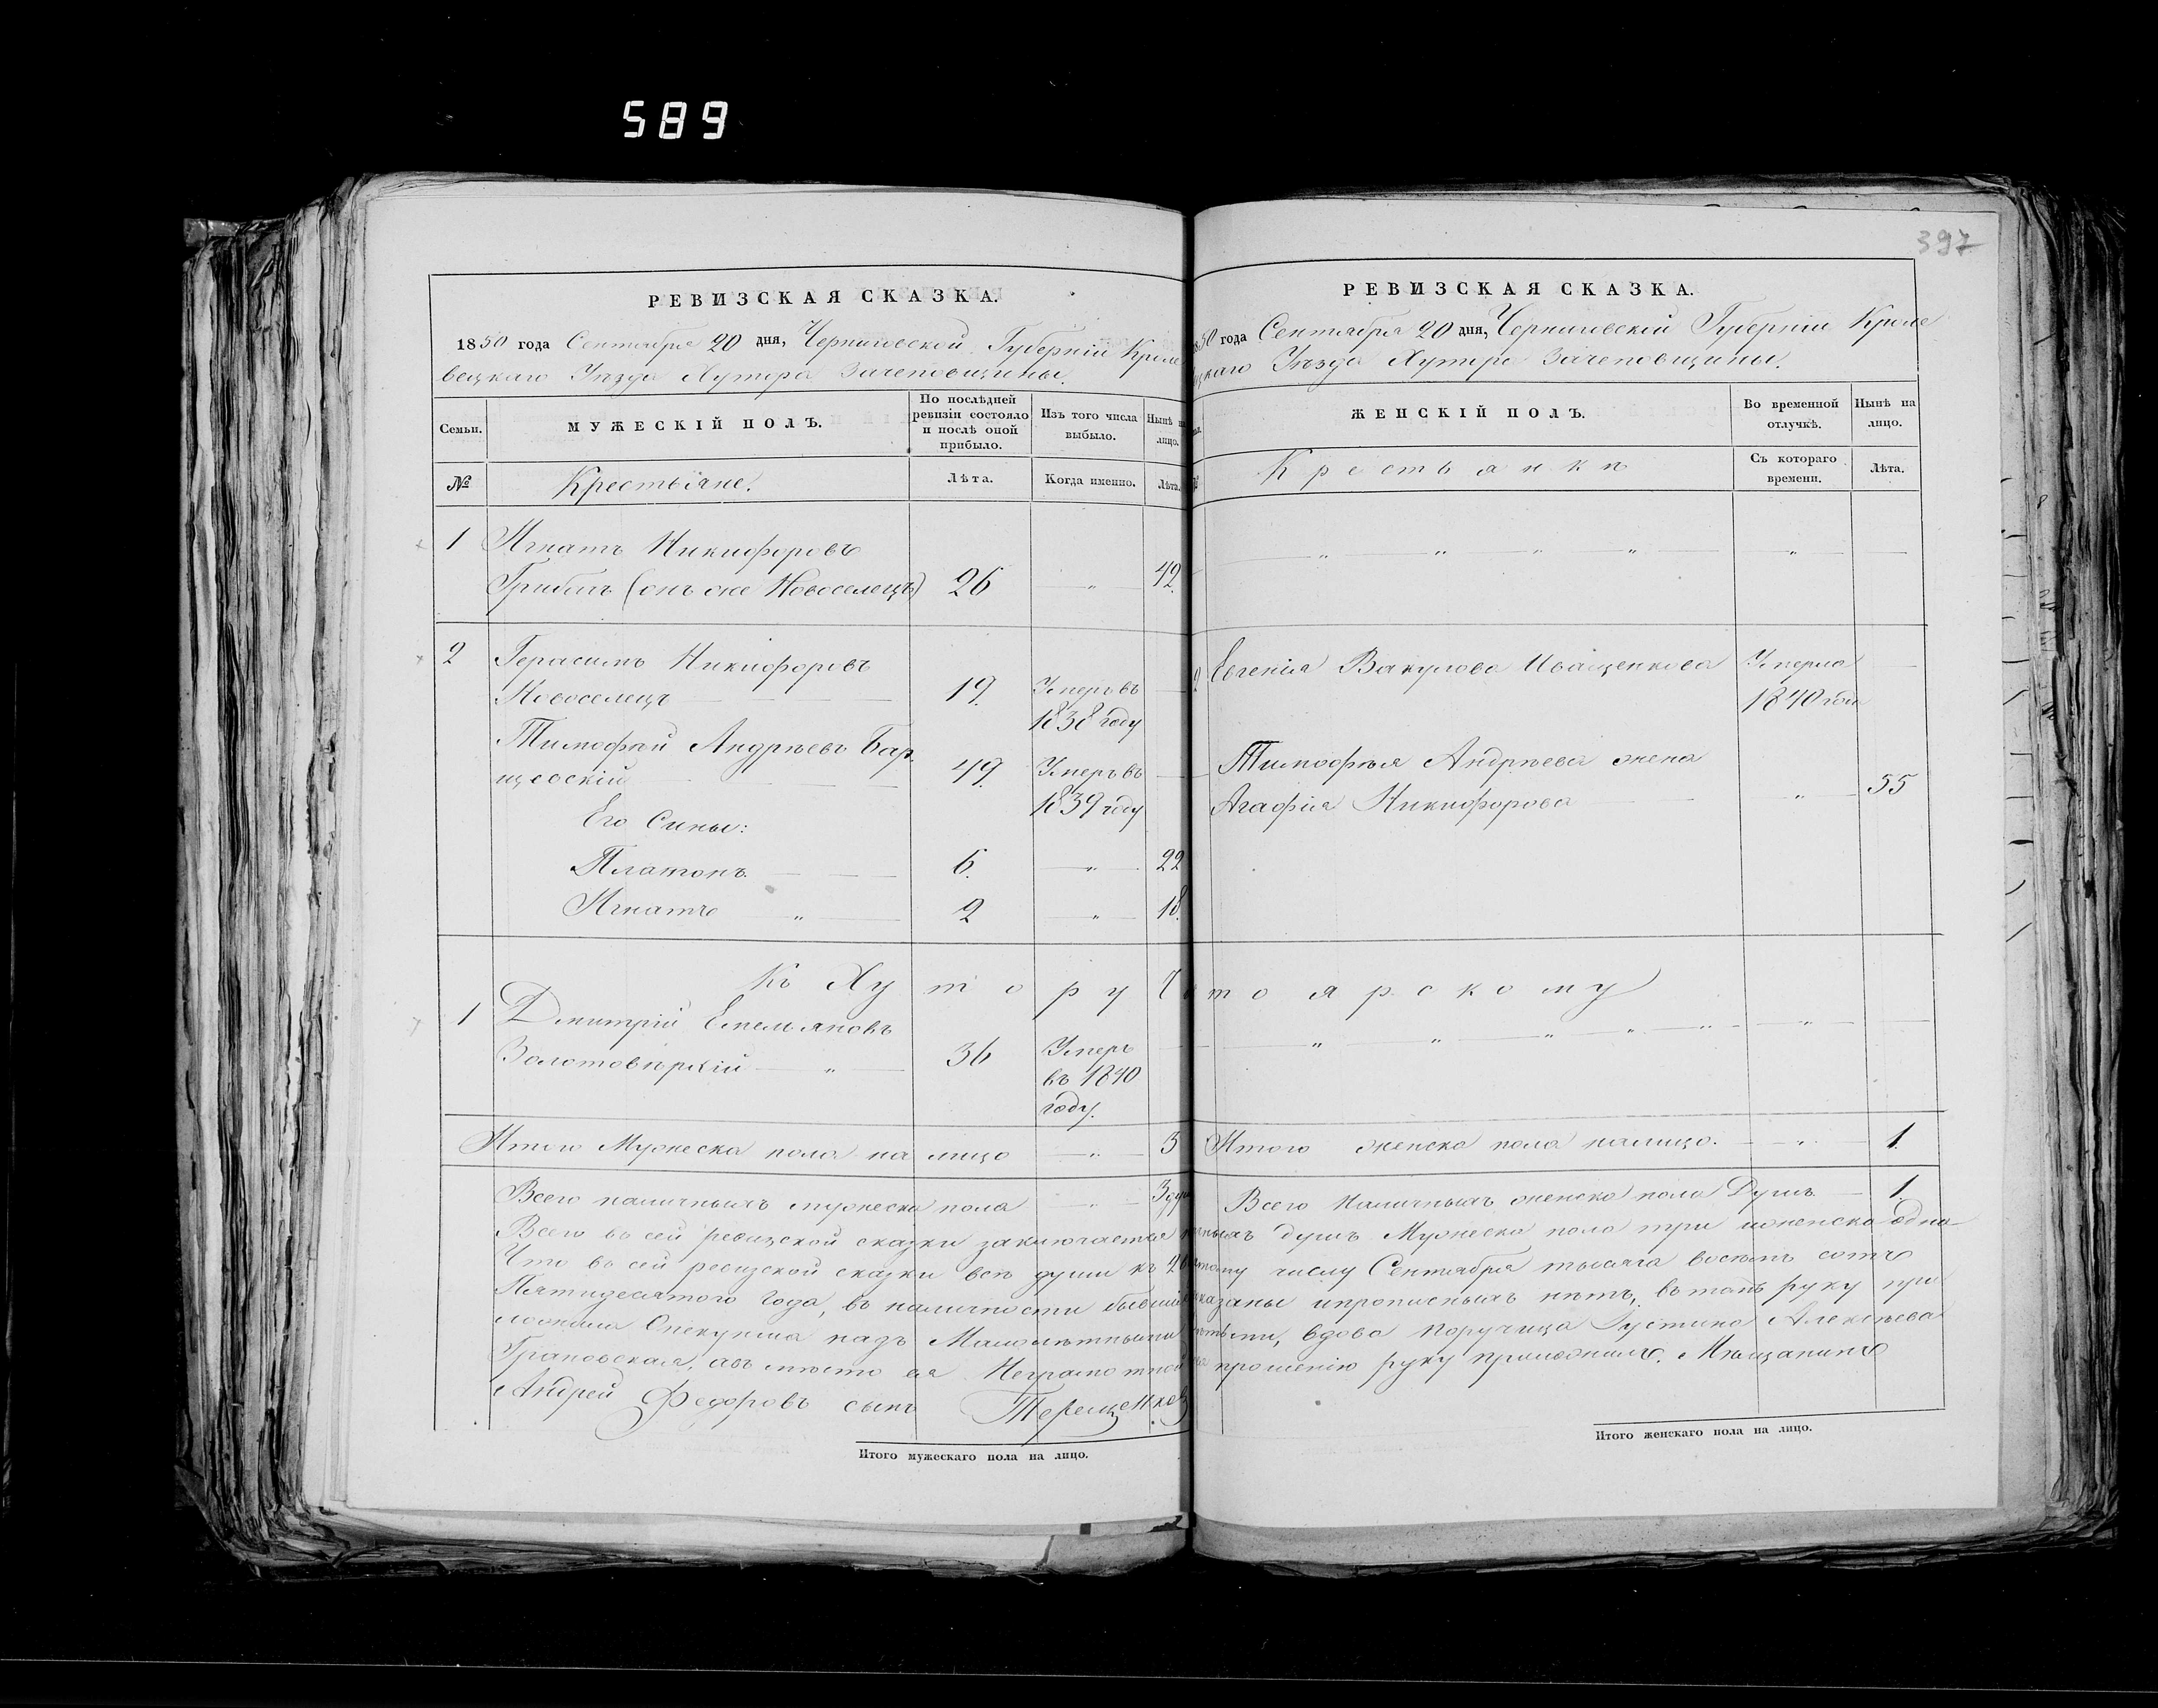 589
397
РЕВИЗСКАЯ СКАЗКА.
1850 года Сентября 20 дня, Черниговской Губерніи Кроле
вецкаго Уѣзда Хутора Зачеповщины.
Семьи.
МУЖЕСКІЙ ПОЛЪ.
По послѣдней ревизіи состояло и послѣ оной прибыло.
Изъ того числа выбыло.
Нынѣ на лицо.
№
Крестьяне.
Лѣта.
Когда именно.
Лѣта.
1 Игнатъ Никифоровъ
(онъ же Новоселецъ) 26 — „ — 42.
2 Герасимъ Никифоровъ
Новоселецъ — 19. Умеръ въ
1838 году
Тимофѣй Андрѣевъ Бар
щевскій — 49. Умеръ въ
1839 году
Его Сины:
Платонъ. — 6. — „ — 22
Игнатъ „ — 2 — „ — 18.
Къ Хутору
1 Дмитрій Емельяновъ
36 Умеръ
въ 1840
году.
Итого Мужеска пола на лицо — „ — 3
Всего наличныхъ мужеска пола — „ — 3 душ
Всего во сей ревизской сказки заключается
Что во сей ревизской сказки всѣ души къ 20
Пятидесятого года, въ наличности бывшие
ложила Опекунша надъ Малолѣтными
Грановская, авъ мѣсто ея Неграмотной
Андрей Федоровъ сынъ Терещенко
Итого мужескаго пола на лицо.
РЕВИЗСКАЯ СКАЗКА.
1850 года Сентября 20 дня, Черниговскій Губерніи Кроле
вецкаго Уѣзда Хутора Зачеповщины.
ЖЕНСКІЙ ПОЛЪ.
Во временной отлучкѣ.
Нынѣ на лицо.
Крестьянки
Съ котораго времени.
Лѣта.
2 Евгенія Вакулова Иващенкова Умерла
1840 года
Тимофѣя Андрѣева жена
Агафія Никифорова — „ — 55
тоярскому
Итого женска пола налицо. — „ — 1.
Всего Наличныхъ женска пола Душъ — 1.
душъ Мужеска пола три иженска одна
числу Сентября тысяча восемъ сотъ
показаны ипрописныхъ нѣтъ, въ томъ руку при
дѣтьми, вдова Поручица Густина Алексѣева
прошенію руку приложилъ. Мѣщанинъ
Итого женскаго пола на лицо.